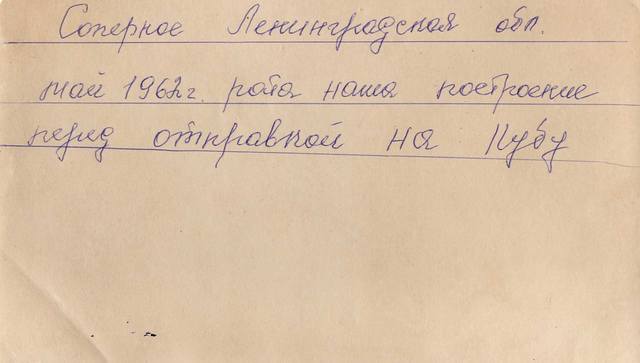 Соперное Ленинградская обл.
май 1962 г. рота наша построение
перед отправкой на Кубу